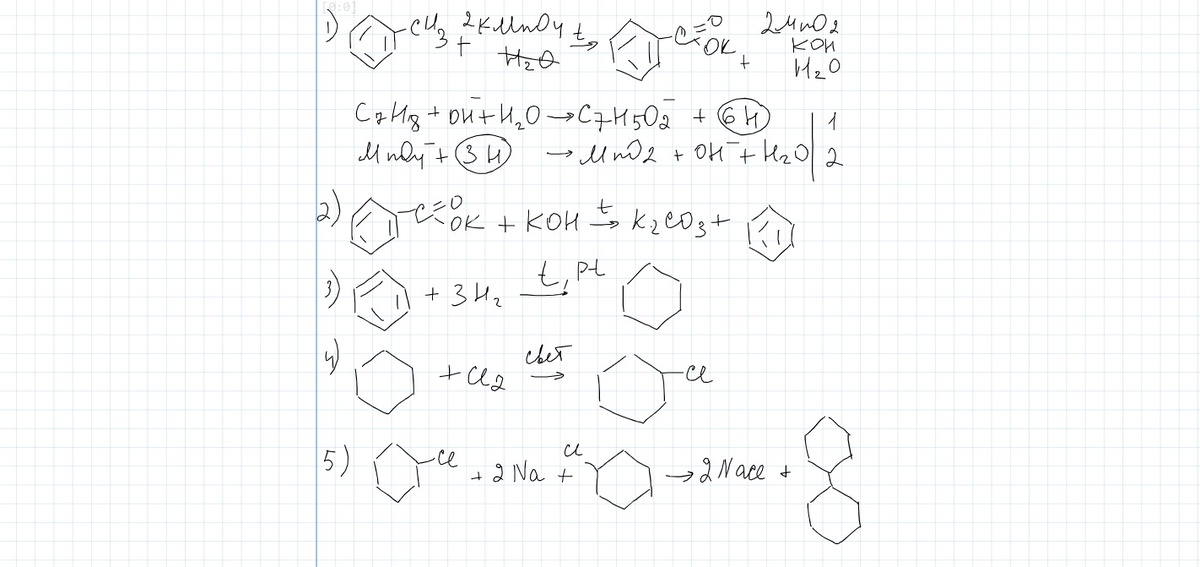 [0:0]
1) CH3 + 2KMnO4 H2O t → C =O OK + 2MnO2 KOH H2O
C7H8 + OH⁻ + H2O → C7H5O2⁻ + 6H | 1
MnO4⁻ + 3H → MnO2 + OH⁻ + H2O | 2
2) C =O OK + KOH t → K2CO3 +
3) + 3H2 t, Pt →
4) + Cl2 свет → Cl
5) Cl + 2Na + Cl → 2NaCl +